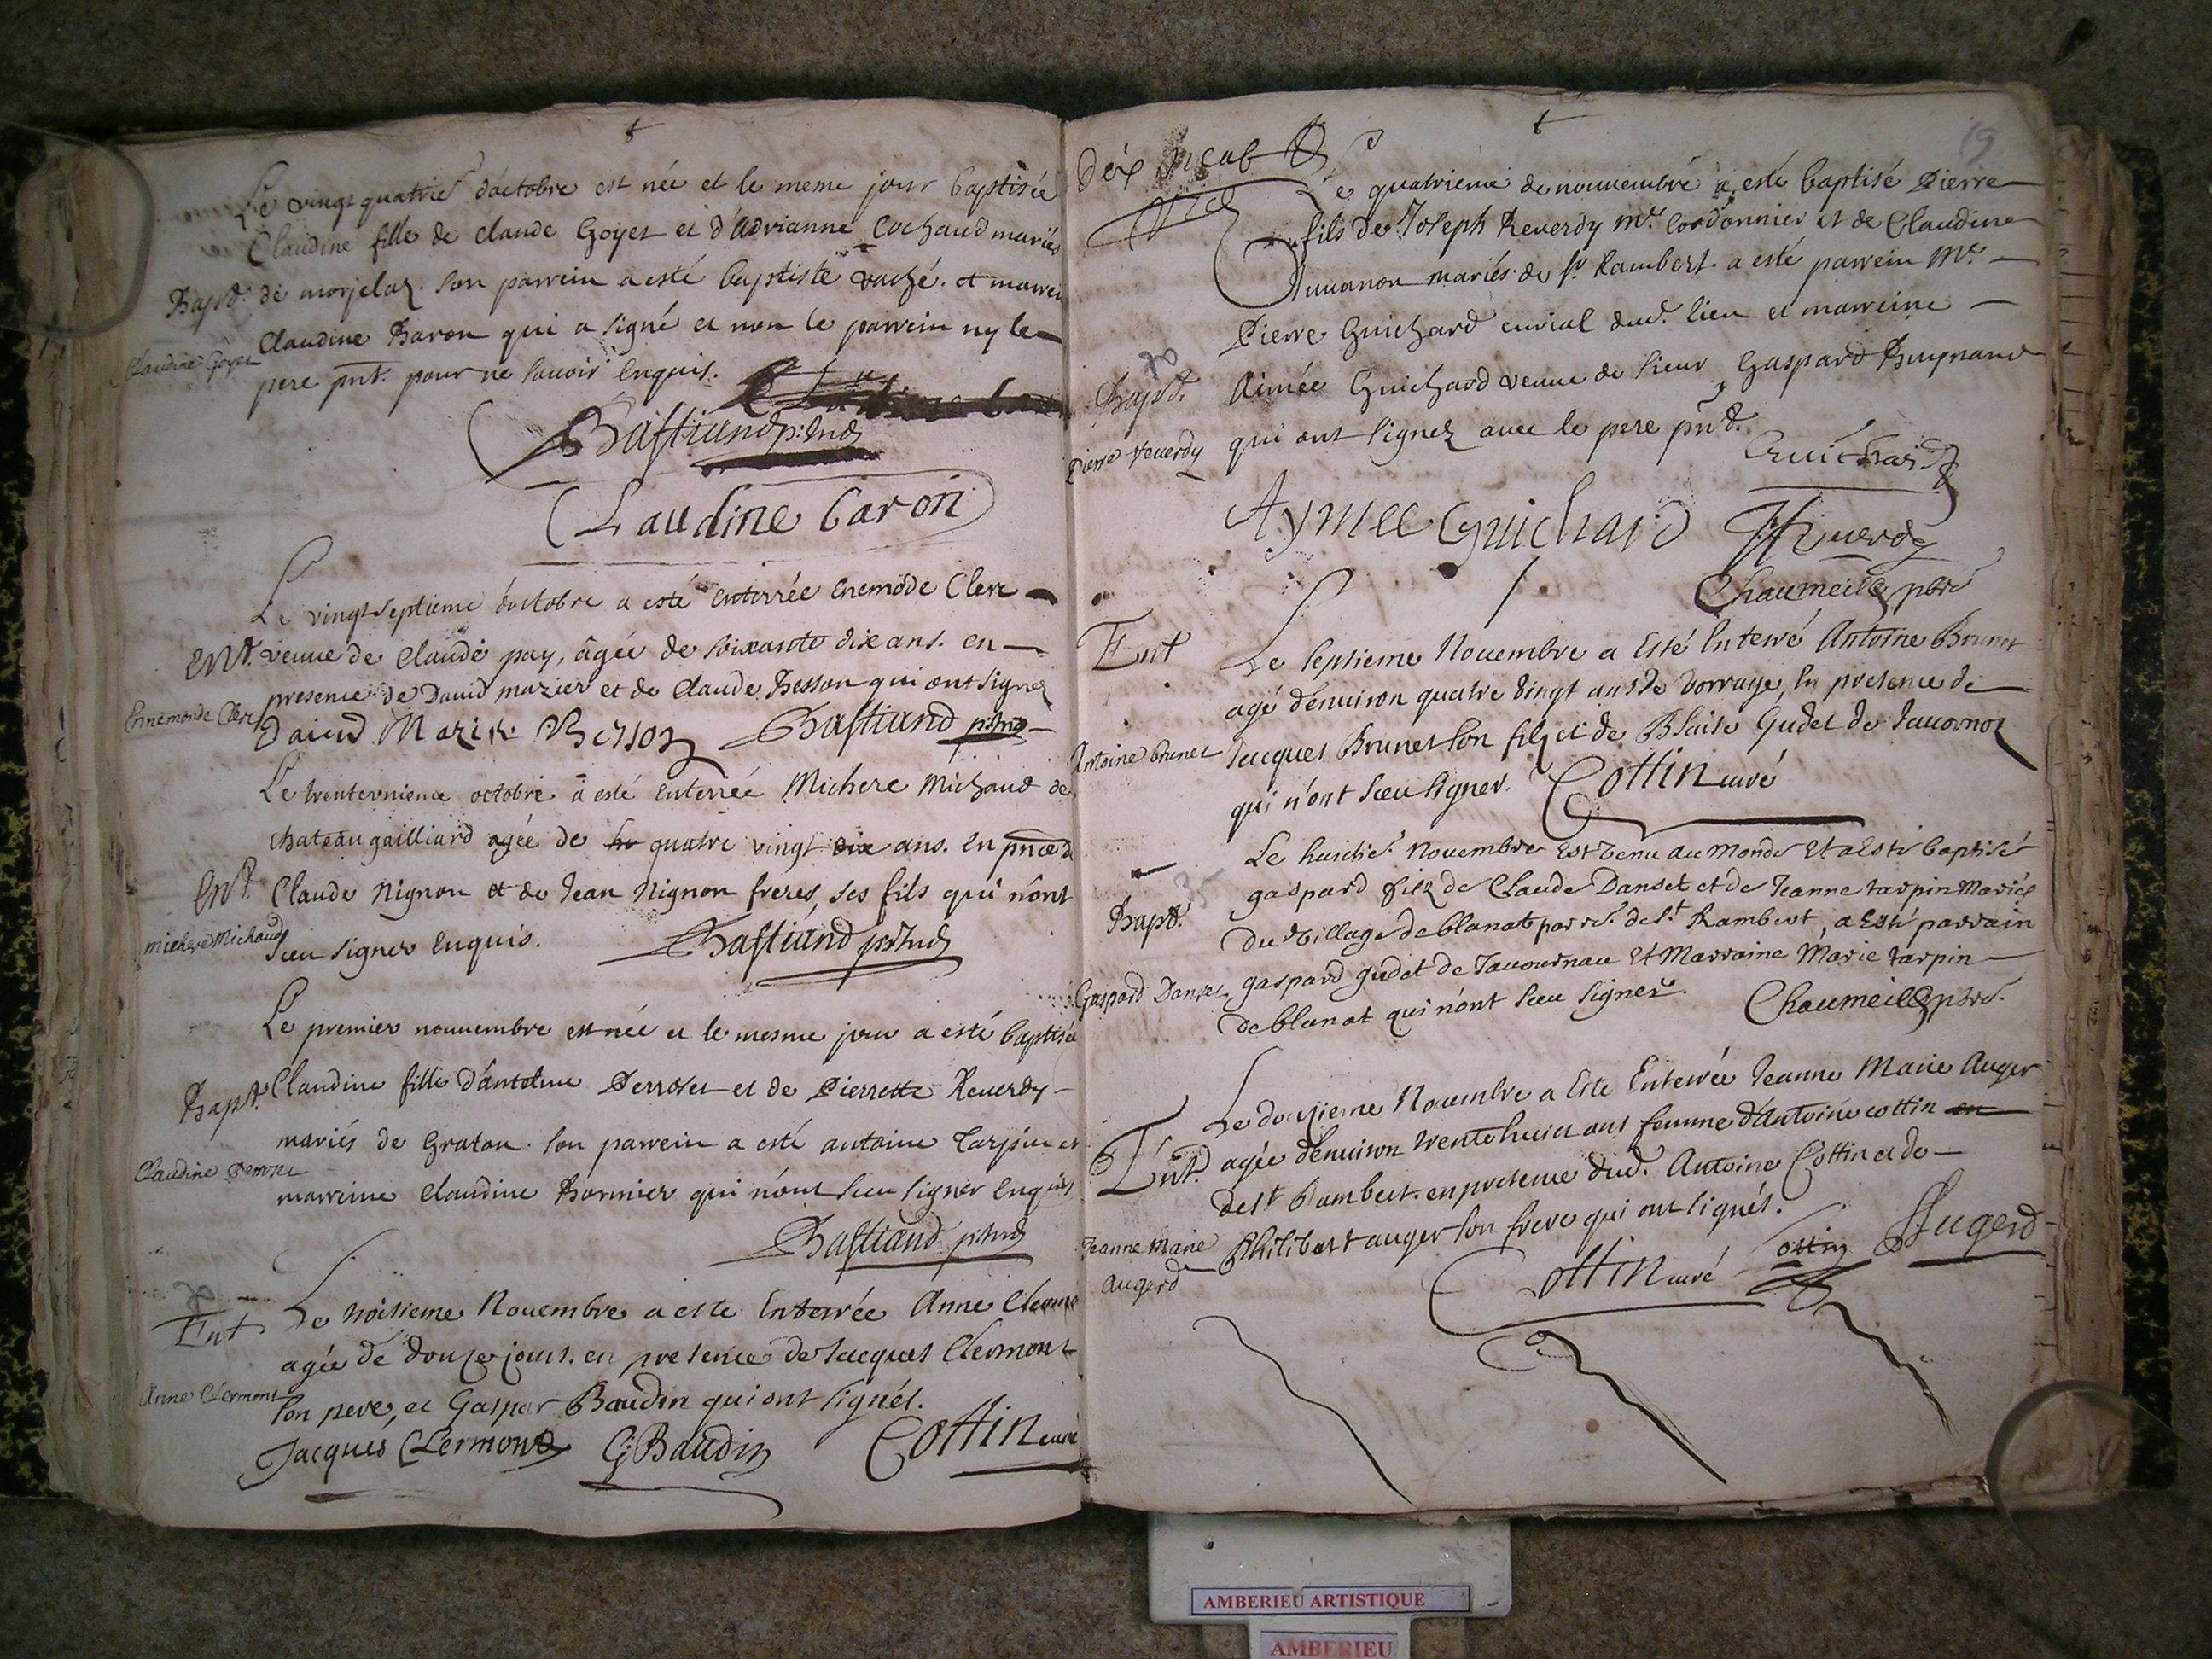 Le vingt quatrie d'octobre est née et le meme jour baptisée
Claudine fille de claude Goyet et d'adrianne Cochaud mariés
Bapt. de morjelaz. son parrein a esté baptiste vaché. et marrein
Claudine Goyet
Claudine Baron qui a signé et non le parrein ny le
pere pnt. pour ne scavoir enquis.
Bastiand
Claudine Baron
Le vingtseptieme d'octobre a esté enterrée Enemode Clerc
Ent. veuve de Claude pay, âgée de soixante dix ans. en
presence de David mazier et de Claude Besson qui ont signez
Ennemonde Clerc
David Mazier Besson Bastiand
Le trenteunieme octobre a esté enterrée Michere Michaud de
chateau gailliard agée de quatre vingt dix ans. en pnce d
Ent. Claude Nignon et de Jean Nignon freres, ses fils qui n'ont
michere Michaud
sceu signer enquis. Bastiand
Le premier nouuembre est née et le mesme jour a esté baptisée
Bapt. Claudine fille d'antelme Perroset et de Pierrette Reuerdy
mariés de Graton. son parrein a esté antoine Tarpin et
Claudine Perroset
marreine Claudine Bonnier qui n'ont sceu signer enquis
Bastiand
Ent
Le troisieme Nouembre a este Enterrée Anne Clermont
agée de douze jours. en presence de Jacques Clermont
Anne Clermont
son pere, et Gaspar Baudin qui ont signés.
Jacques Clermond G: Baudin Cottin curé
19
Le quatrieme de nouuembre a esté baptisé Pierre
fils de Joseph Reuerdy Me. Cordonnier et de Claudine
Auuanon mariés de St. Rambert. a esté parrein Me
Pierre Guichard curial dud. lieu et marreine
Bapt. Aimée Guichard veuue de sieur Gaspard Buynand
Pierre Reuerdy
qui ont signez auec le pere pnt.
Guichard
Aymee Guichard Reuerdy
Chaumeille
Ent
Le septieme Nouembre a Esté Enterré Antoine Brunet
agé d'enuiron quatre vingt ans de vorrage, En presence de
Antoine Brunet
Jacques Brunet son fils et de Blaise Gudet de Jauornoz
qui n'ont sceu signer. Cottin curé
Le huictie. Nouembre Est venu au Monde Et a Esté baptisé
gaspard filz de Claude Danset et de Jeanne tarpin Mariés
Bapt.
Du village de blanat parr. de St Rambert, a Esté parrain
Gaspard Danset
gaspard gudet de Jauournau Et Marraine Marie tarpin
de blanat qui n'ont sceu signer. Chaumeille
Le douzieme Nouembre a Este Enterrée Jeanne Marie Auger
Ent. agée d'enuiron trente huict ans femme d'Antoine cottin
de St Rambert. en presence dud. Antoine Cottin et de
Jeanne Marie Augerd
Philibert auger son frere qui ont signés.
Cottin curé Cottin Augerd
AMBERIEU ARTISTIQUE
AMBERIEU